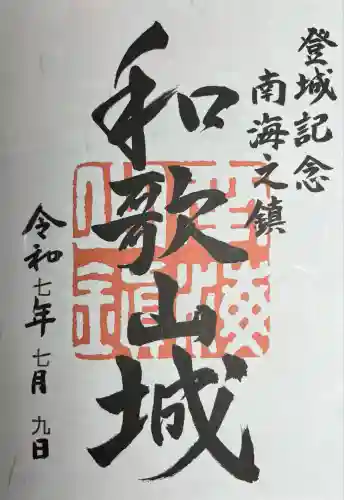 登城記念
南海之鎮
和歌山城
令和七年七月九日